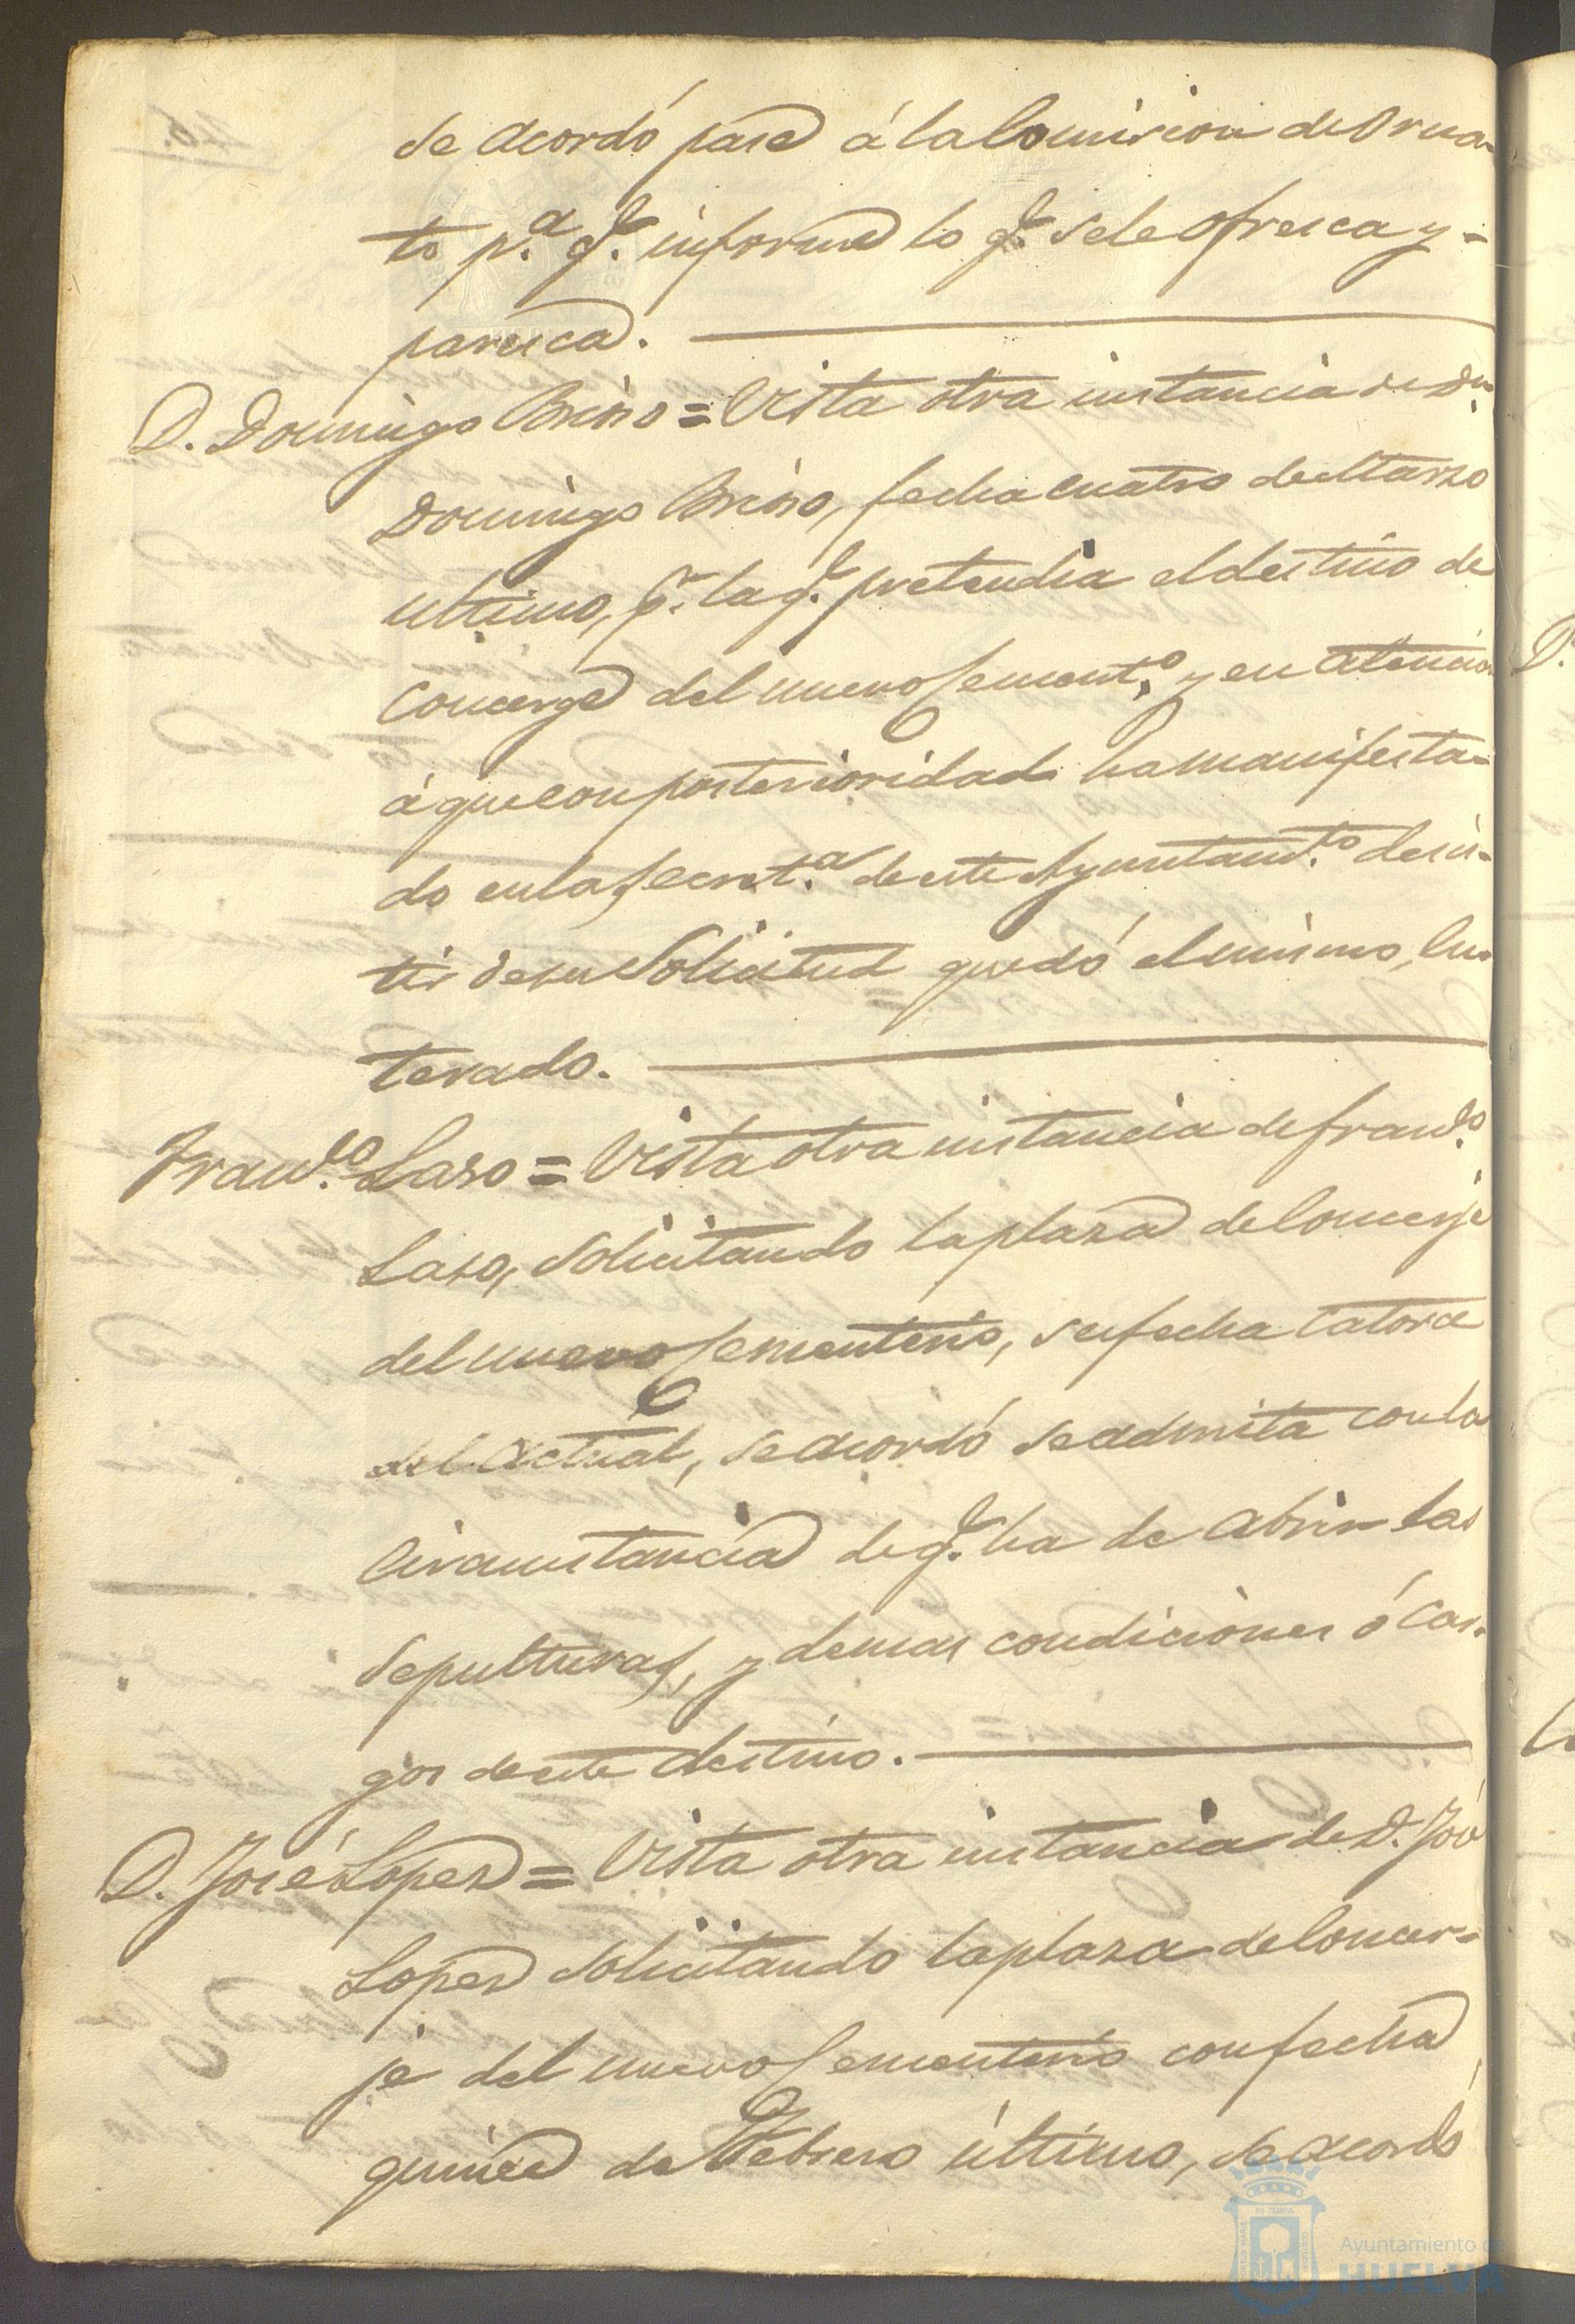 se acordó pase á la Comision de Orna-
to p.ª q.e informe lo q.e se le ofresca y =
paresca.
D. Domingo Briso = Vista otra instancia de Dn.
Domingo Briso, fecha cuatro de Marzo
ultimo, p.r la q.e pretendia el destino de
Concerge del nuevo Sement.o y en atencion
á que con posterioridad ha manifesta-
do en la Secret.ª de este Ayuntam.to desis-
tir de su Solicitud quedó el mismo, En-
terado.
Fran.co Laso = Vista otra instancia de Fran.co
Laso, Solicitando la plaza de Concerje
del nuevo Sementerio, su fecha Catorce
del actual, se acordó se admita con la
Circunstancia de q.e ha de abrir las
Sepulturas, y demas condiciones ó Car-
gos de este destino.
D. José Lopez = Vista otra instancia de D. José
Lopez Solicitando la plaza de Concer-
je del nuevo Sementerio con fecha
quince de Febrero último, se acordó
Ayuntamiento de
HUELVA